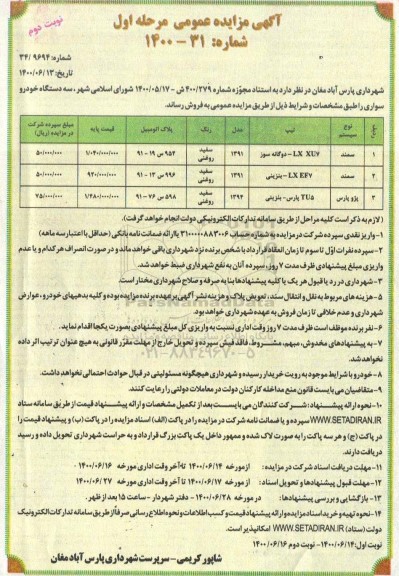 آگهی مزایده عمومی مرحله اول
شماره: ۳۱ - ۱۴۰۰
نوبت دوم
شماره: ۳۴/۹۶۹۴
تاریخ: ۱۴۰۰/۰۶/۱۳
شهرداری پارس آباد مغان در نظر دارد به استناد مجوزه شماره ۴۰۰/۲۷۹ش - ۱۴۰۰/۰۵/۱۷ شورای اسلامی شهر، سه دستگاه خودرو
سواری را طبق مشخصات و شرایط ذیل از طریق مزایده عمومی به فروش رساند.
ردیف نوع سیستم تیپ مدل رنگ پلاک اتومبیل قیمت پایه مبلغ سپرده شرکت در مزایده (ریال)
۱ سمند LX XU۷ – دوگانه سوز ۱۳۹۱ سفید روغنی ۹۵۴ ص ۱۹ - ۹۱ ۱/۰۴۰/۰۰۰/۰۰۰ ۵۰/۰۰۰/۰۰۰
۲ سمند LX EF۷ – بنزینی ۱۳۹۱ سفید روغنی ۹۹۶ ص ۱۳ - ۹۱ ۹۲۰/۰۰۰/۰۰۰ ۵۰/۰۰۰/۰۰۰
۳ پژو پارس TU۵ پارس - بنزینی ۱۳۹۴ سفید روغنی ۵۹۸ ص ۷۶ - ۹۱ ۱/۴۸۰/۰۰۰/۰۰۰ ۷۵/۰۰۰/۰۰۰
(لازم به ذکر است کلیه مراحل از طریق سامانه تدارکات الکترونیکی دولت انجام خواهد گرفت).
۱- واریز نقدی سپرده شرکت در مزایده به شماره حساب ۳۱۰۰۰۰۰۸۸۳۰۰۶ یا ارائه ضمانت نامه بانکی (حداقل با اعتبار سه ماهه)
۲- سپرده نفرات اول تا سوم تا زمان انعقاد قرارداد با شخص برنده نزد شهرداری باقی خواهد ماند و در صورت انصراف هر کدام و یا عدم
واریزی مبلغ پیشنهادی ظرف مدت ۷ روز، سپرده آنان به نفع شهرداری ضبط خواهد شد.
۳- شهرداری در رد یا قبول هر یک یا کلیه پیشنهادها بنا به صرفه و صلاح شهرداری مختار است.
۵- هزینه های مربوط به نقل و انتقال سند، تعویض پلاک و هزینه نشر آگهی بر عهده برنده مزایده بوده و کلیه بدهیهای خودرو، عوارض
شهرداری و عدم خلافی تا زمان فروش به عهده شهرداری خواهد بود.
۶- نفر برنده موظف است ظرف مدت ۷ روز وقت اداری نسبت به واریزی کل مبلغ پیشنهادی بصورت یکجا اقدام نماید.
۷- به پیشنهادهای مخدوش، مبهم، مشروط، فاقد فیش سپرده و تحویل خارج از مهلت مقرر قانونی به هیچ عنوان ترتیب اثر داده
نخواهد شد.
۸- خودرو با شرایط موجود به رویت خریدار رسیده و شهرداری هیچگونه مسئولیتی در قبال حوادث احتمالی نخواهد داشت.
۹- متقاضیان می بایست قانون منع مداخله کارکنان دولت در معاملات دولتی را رعایت کنند.
۱۰- نحوه ارائه پیشنهاد: شرکت کنندگان می بایست بعد از تکمیل مشخصات و ارائه پیشنهاد قیمت از طریق سامانه ستاد
WWW.SETADIRAN.IR سپرده و یا ضمانت نامه شرکت در مزایده را در پاکت (الف) اسناد مزایده را در پاکت (ب) و پیشنهاد قیمت را
در پاکت (ج) و هر سه پاکت را به صورت لاک شده و ممهور داخل یک پاکت بزرگ قرارداد و به حراست شهرداری تحویل داده و رسید
دریافت دارند.
۱۱- مهلت دریافت اسناد شرکت در مزایده: از مورخه ۱۴۰۰/۰۶/۱۴ تا آخر وقت اداری مورخه ۱۴۰۰/۰۶/۱۶
۱۲- مهلت قبول پیشنهادها و تحویل اسناد: از مورخه ۱۴۰۰/۰۶/۱۷ تا آخر وقت اداری مورخه ۱۴۰۰/۰۶/۲۷
۱۳- بازگشایی و بررسی پیشنهادها: در مورخه ۱۴۰۰/۰۶/۲۸ - دفتر شهردار - ساعت ۱۵ بعد از ظهر.
۱۴- نحوه تهیه و خرید اسناد مزایده و ارائه پیشنهاد قیمت و کسب اطلاعات و نحوه اطلاع رسانی صرفاً از طریق سامانه تدارکات الکترونیک
دولت (ستاد) WWW.SETADIRAN.IR امکانپذیر است.
نوبت اول: ۱۴۰۰/۰۶/۱۴ - نوبت دوم ۱۴۰۰/۰۶/۱۶
شاپور کریمی - سرپرست شهرداری پارس آباد مغان
ParsNamadData
۰۲۱-۸۸۳۴۹۶۷۰-۵